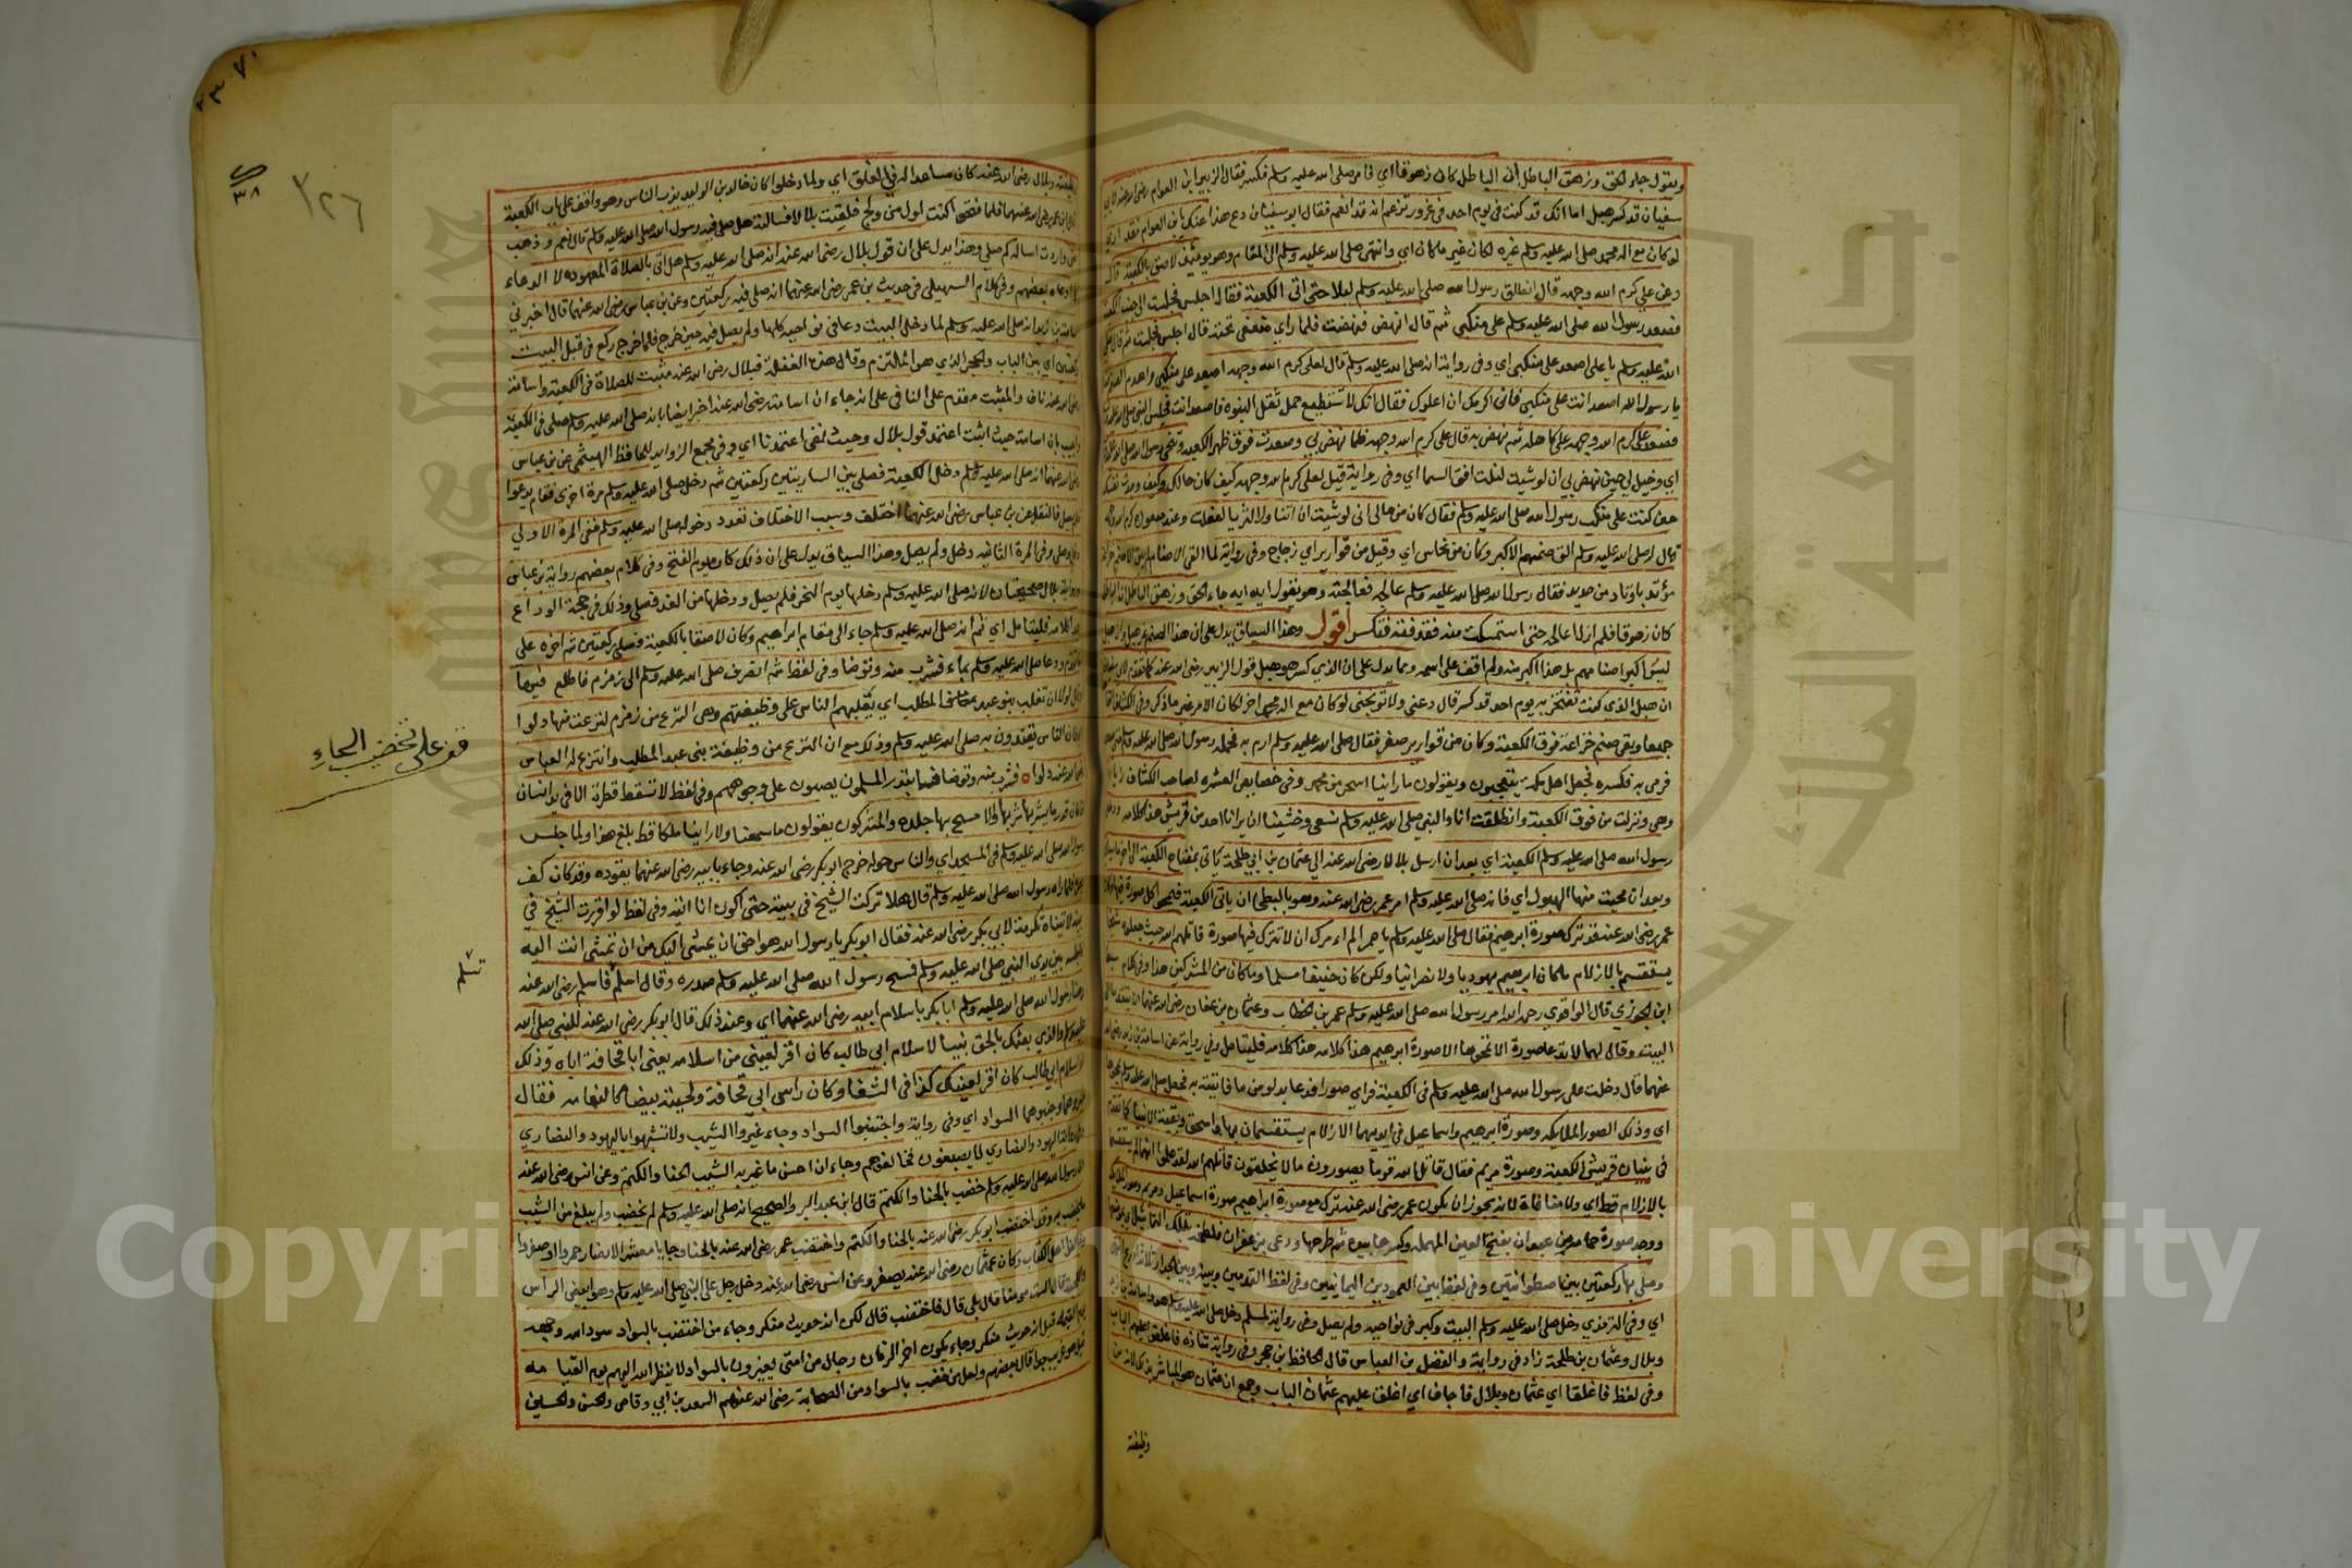 ويقول جاء الحق وزهق الباطل ان الباطل كان زهوقا اي فامر صلى الله عليه وسلم فكسر فقال الزبير ابن العوام رضي الله عنه لابي
سفيان قد كسر هبل اما انك قد كنت في يوم احد في غرور تزعم انه قد انعم فقال ابو سفيان دع هذا عنك يابن العوام فقد اري
لو كان مع اله محمد صلى الله عليه وسلم غيره لكان غير ما كان اي وانتهى صلى الله عليه وسلم الى المقام وهو يومئذ لاصق بالكعبة قال
وعن علي كرم الله وجهه قال انطلق رسول الله صلى الله عليه وسلم ليلا حتى اتى الكعبة فقال اجلس فجلست الى جنب الكعبة
فصعد رسول الله صلى الله عليه وسلم على منكبي ثم قال انهض فنهضت فلما راي ضعفي تحته قال اجلس فجلست ثم قال صلى
الله عليه وسلم يا على اصعد على منكبي اي وفي رواية انه صلى الله عليه وسلم قال لعلي كرم الله وجهه اصعد على منكبي واهدم الصنم
يا رسول الله اصعد انت على منكبي فاني اكرمك ان اعلوك فقال انك لا تستطيع حمل ثقل النبوه فاصعد انت فجلس النبي صلى الله عليه وسلم
فصعد على كرم الله وجهه على كاهله ثم نهض به قال على كرم الله وجهه فلما نهض بي وصعدت فوق ظهر الكعبه وتنحى رسول الله صلى الله عليه
اي وخيل لي حين نهض بي ان لو شيت لنلت افق السما اي وفي رواية قيل لعلي كرم الله وجهه كيف كان حالك وكيف وجدت نفسك
حين كنت على منكب رسول الله صلى الله عليه وسلم فقال كان من حالي اني لو شيت ان اتناول الثريا لفعلت وعند صعوده كرم الله وجهه
قال له صلى الله عليه وسلم الق صنمهم الاكبر وكان من نحاس اي وقيل من قوارير اي زجاج وفي رواية لما القى الاصنام لم يبق الا صنم خزاعة
موتد باوتاد من حديد فقال رسول الله صلى الله عليه وسلم عالجه فعالجته وهو يقول ايه ايه جاء الحق وزهق الباطل ان الباطل
كان زهوقا فلم ازل اعالجه حتى استمكنت منه فقذفته فتكسر اقول وهذا السياق يدل على ان هذا الصنم غير هبل وان هبل
ليس اكبر اصنامهم بل هذا اكبر منه ولم اقف على اسمه ومما يدل على ان الذي كسر هو هبل قول الزبير رضي الله عنه كما تقدم لابي سفيان
ان هبل الذي كنت تفتخر به يوم احد قد كسر قال دعني ولا توبخني لو كان مع اله محمد اخر لكان الامر غير ما ذكر وفي الكشاف القاها
جميعا وبقي صنم خزاعة فوق الكعبة وكان من قوارير صفر فقال صلى الله عليه وسلم ارم به فحمله رسول الله صلى الله عليه وسلم حتى صعد
فرمى به فكسره فجعل اهل مكة يتعجبون ويقولون ما راينا اسحر من محمد وفي خصايص العشره لصاحب الكشاف زيادة
وهي ونزلت من فوق الكعبة وانطلقت انا والنبي صلى الله عليه وسلم نسعى وخشينا ان يرانا احد من قريش هذا كلامه ودخل
رسول الله صلى الله عليه وسلم الكعبة اي بعد ان ارسل بلالا رضي الله عنه الى عثمان بن ابي طلحة ياتي بمفتاح الكعبة الى اخر ما ياتي
وبعد ان محيت منها الصور اي فانه صلى الله عليه وسلم امر عمر رضي الله عنه وهو بالبطحا ان ياتي الكعبة فيمحو كل صورة فيها وكان
عمر رضي الله عنه قد ترك صورة ابرهيم فقال صلى الله عليه وسلم يا عمر الم امرك ان لا تترك فيها صورة قاتلهم الله حيث جعلوه شيخا
يستقسم بالازلام ما كان ابرهيم يهوديا ولا نصرانيا ولكن كان حنيفا مسلما وما كان من المشركين هذا وفي كلام سبط
ابن الجوزي قال الواقدي رحمه الله امر رسول الله صلى الله عليه وسلم عمر بن الخطاب وعثمان بن عفان رضي الله عنهما ان يتقدما الى
البيت وقال لهما لا تدعا صورة الا تمحوها الا صورة ابرهيم هذا كلامه هذا كلامه فليتامل وفي رواية عن اسامة بن زيد رضي الله
عنهما قال دخلت على رسول الله صلى الله عليه وسلم في الكعبة فراي صورا فدعا بدلو من ما فاتيته به فجعل صلى الله عليه وسلم يمحوها
اي وذلك الصور الملايكه وصورة ابرهيم واسماعيل في ايديهما الازلام يستقسمان بها واسحق وبقية الانبيا كما تقدم
في بنيان قريش الكعبة وصورة مريم فقال قاتل الله قوما يصورون ما لا يخلقون قاتلهم الله لقد علموا انهما لم يستقسما
بالازلام قط اي ولا منافاة لانه يجوز ان يكون عمر رضي الله عنه ترك مع صورة ابراهيم صورة اسماعيل ومريم وصور الملايكة
ووجد صورة حمامة من عيدان بفتح العين المهمله وكسرها بيده ثم طرحها ودعى بزعفران فلطخ بتلك التماثيل
وصلى بها ركعتين بين اسطوانتين وفي لفظ بين العمودين اليمانيين وفي لفظ القدمين وبينه وبين الجدار ثلاثة اذرع
اي وفي الترمذي دخل صلى الله عليه وسلم البيت وكبر في نواحيه ولم يصل وفي رواية لمسلم دخل صلى الله عليه وسلم هو واسامة بن زيد
وبلال وعثمان بن طلحة زاد في رواية والفضل بن العباس قال الحافظ بن حجر وفي رواية شاذة فاغلقوا عليهم الباب
وفي لفظ فاغلقا اي عثمان وبلال فاجاف اي اغلق عليهم عثمان الباب وجمع ان عثمان هو المباشر لذلك لانه من
وظيفته
وظيفته وبلال رضي الله عنه كان مساعدا له في الغلق اي ولما دخلوا كان خالد بن الوليد يذب الناس وهو واقف على باب الكعبة
قال ابن عمر رضي الله عنهما فلما فتحوا كنت اول من ولج فلقيت بلالا فسالته هل صلى فيه رسول الله صلى الله عليه وسلم قال نعم وذهب
عني واردت اساله كم صلى وهذا يدل على ان قول بلال رضي الله عنه انه صلى الله عليه وسلم صلى اتى بالصلاة المعهوده لا الدعاء
كما ادعاه بعضهم وفي كلام السهيلي في حديث بن عمر رضي الله عنهما انه صلى فيه ركعتين وعن بن عباس رضي الله عنهما قال اخبرني
اسامة بن زيد انه صلى الله عليه وسلم لما دخل البيت دعا في نواحيه كلها ولم يصل فيه حين خرج فلما خرج ركع في قبل البيت
ركعتين اي بين الباب والحجر الذي هو الملتزم وقال هذه القبلة فبلال رضي الله عنه مثبت للصلاة في الكعبة واسامة
رضي الله عنه ناف والمثبت مقدم على النافي على انه جاء ان اسامة رضي الله عنه اخبر ايضا بانه صلى الله عليه وسلم صلى في الكعبة
واجيب بان اسامة حيث اثبت اعتمد قول بلال وحيث نفى اعتمد ما اي وفي مجمع الزوايد للحافظ الهيثمي عن بن عباس
رضي الله عنهما انه صلى الله عليه وسلم دخل الكعبة فصلى بين الساريتين ركعتين ثم دخل صلى الله عليه وسلم مرة اخرى فقام يدعوا
ولم يصل فالنقل عن بن عباس رضي الله عنهما اختلف وسبب الاختلاف تعدد دخوله صلى الله عليه وسلم ففي المرة الاولى
دخل وصلى وفي المرة الثانيه دخل ولم يصل وهذا السياق يدل على ان ذلك كان يوم الفتح وفي كلام بعضهم رواية بن عباس
ورواية بلال صحيحتان لانه صلى الله عليه وسلم دخلها يوم النحر فلم يصل ودخلها من الغد فصلى وذلك في حجة الوداع
هذا كلامه فليتامل اي ثم انه صلى الله عليه وسلم جاء الى مقام ابراهيم وكان لاصقا بالكعبة فصلى ركعتين ثم اخره على
ما تقدم ودعا صلى الله عليه وسلم بماء فشرب منه وتوضا وفي لفظ ثم انصرف صلى الله عليه وسلم الى زمزم فاطلع فيها
وقال لولا ان تغلب بنو عبد المطلب اي يغلبهم الناس على وظيفتهم وهي النزع من زمزم لنزعت منها دلوا
لان الناس يقتدون به صلى الله عليه وسلم وذلك مع ان النزع من وظيفة بني عبد المطلب وانتزع له العباس
رضي الله عنه دلوا فشرب منه وتوضا فابتدر المسلمون يصبون على وجوههم وفي لفظ لا تسقط قطرة الا في يد انسان
ان كان قدر ما يشربها شربها والا مسح بها جلده والمشركون يقولون ما سمعنا ولا راينا ملكا قط بلغ هذا ولما جلس
رسول الله صلى الله عليه وسلم في المسجد اي والناس حوله خرج ابو بكر رضي الله عنه وجاء بابيه رضي الله عنهما يقوده وقد كان كف
بصره فلما راه رسول الله صلى الله عليه وسلم قال هلا تركت الشيخ في بيته حتى اكون انا اتيه وفي لفظ لو اقررت الشيخ في
بيته لاتيناه تكرمة لابي بكر رضي الله عنه فقال ابو بكر يا رسول الله هو احق ان يمشي اليك من ان تمشي انت اليه
فاجلسه بين يدي النبي صلى الله عليه وسلم فمسح رسول الله صلى الله عليه وسلم صدره وقال اسلم فاسلم رضي الله عنه
وهنا رسول الله صلى الله عليه وسلم ابا بكر باسلام ابيه رضي الله عنهما اي وعند ذلك قال ابو بكر رضي الله عنه للنبي صلى الله
عليه وسلم والذي بعثك بالحق نبيا لاسلام ابي طالب كان اقر لعيني من اسلامه يعني ابا قحافة اباه وذلك
ان اسلام ابي طالب كان اقر لعينك كذا في الشفا وكان راس ابي قحافة ولحيته بيضا كالثغامه فقال
غيروهما وجنبوهما السواد اي وفي رواية واجتنبوا السواد وجاء غيروا الشيب ولا تشبهوا باليهود والنصاري
وجاء ان اليهود والنصاري لا يصبغون فخالفوهم وجاء ان احسن ما غير به الشيب الحنا والكتم وعن انس رضي الله عنه
ان رسول الله صلى الله عليه وسلم خضب بالحنا والكتم قال ابن عبد البر والصحيح انه صلى الله عليه وسلم لم يخضب ولم يبلغ من الشيب
ما يخضب به وقد اختضب ابو بكر رضي الله عنه بالحنا والكتم واختضب عمر رضي الله عنه بالحنا وجا يا معشر الانصار حمروا او صفروا
وخالفوا اهل الكتاب وكان عثمان رضي الله عنه يصفر وعن انس رضي الله عنه دخل رجل على النبي صلى الله عليه وسلم وهو ابيض الراس
واللحية فقال الست مومنا قال بلى قال فاختضب قال لكن انه حديث منكر وجاء من اختضب بالسواد سود الله وجهه
يوم القيمه قيل انه حديث منكر وجاء يكون اخر الزمان رجال من امتي يغيرون بالسواد لا ينظر الله اليهم يوم القيامه
قيل هو غريب جدا قال بعضهم ولعل من خضب بالسواد من الصحابة رضي الله عنهم السعد بن ابي وقاص والحسن والحسين
قف على تخضيب الحاء
٣٨
٣٢٦
Copyright © King Saud University
جامعة الملك سعود